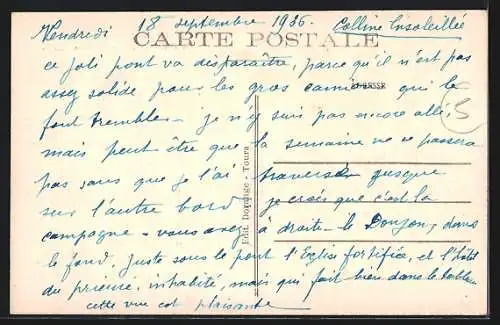 Vendredi 18 septembre 1936. Colline Ensoleillée
CARTE POSTALE
ce joli pont va disparaître, parce qu'il n'est pas
assez solide pour les gros camions qui le
font trembler - je n'y suis pas encore allé,
mais peut être que la semaine ne se passera
pas sans que je l'ai traversé - jusque
sur l'autre bord je crois que c'est la
campagne - vous avez à droite - le Donjon, dans
le fond, juste sous le pont l'Eglise fortifiée, et l'hôtel
du prieuré, inhabité, mais qui fait bien dans le tableau
cette vue est plaisante
ADRESSE
Edit. Dorange - Tours
5